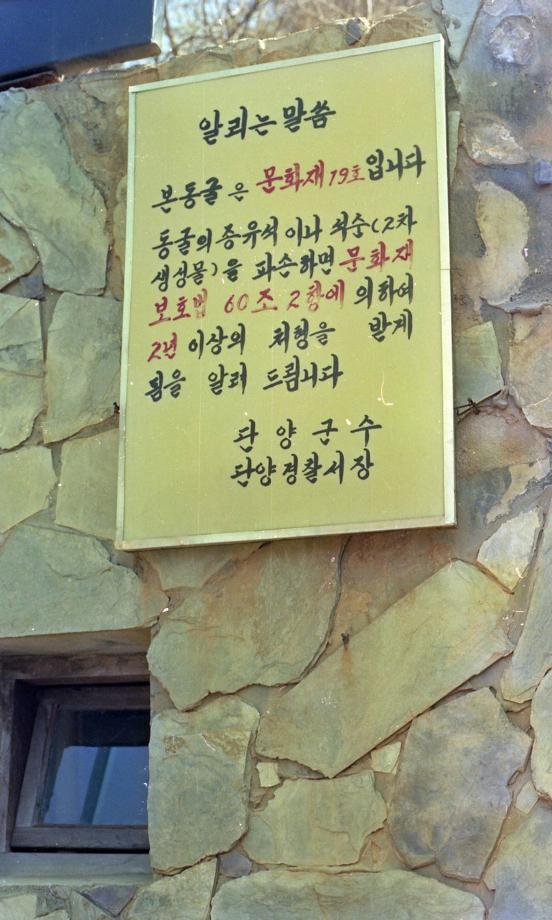 알리는 말씀
본 동굴은 문화재 19호입니다
동굴의 종유석이나 석순(2차
생성물)을 파손하면 문화재
보호법 60조 2항에 의하여
2년 이상의 처형을 받게
됨을 알려 드립니다
단양군수
단양경찰서장